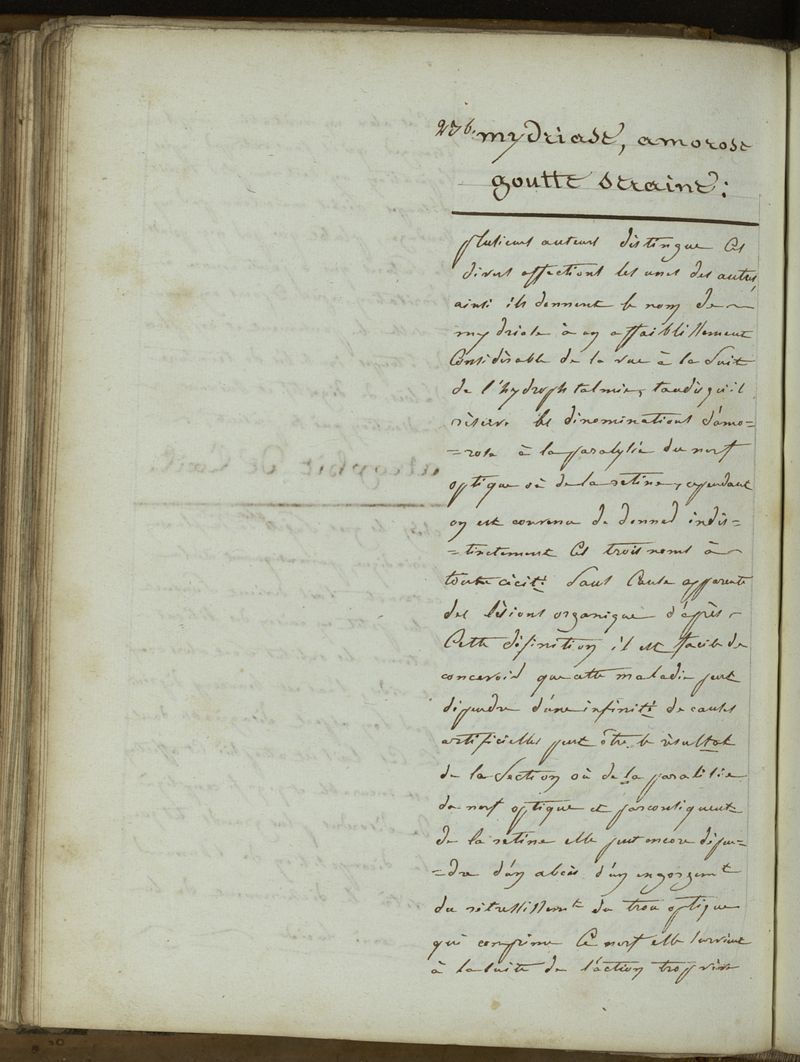 276. mydriase, amorose
goutte seraine:
plusieurs auteurs distingue ces
divers affections les unes des autres,
ainsi ils donnent le nom de
mydriase à un affaiblissement
Considèrable de la vue à la suit
de l'hydrophtalmie, tandisqu'il
rèserve les dinominations d'amo=
=rose à la paralysie du nerf
optique où de la retine, cependant
on est convenu de donner indis=
=tinctement ces trois noms à
toute cècité sans Cause apparente
des lèsions organique d'après
Cette définition il est facile de
concevoir que cette maladie peut
dépendre d'une infinité de causes
artificielles peut être le rèsultat
de la Section où de la paralisie
du nerf optique et parconsiquent
de la retine elle peut encore dépen=
=dre d'un abcès d'un engorgemt
du rètressissemt du trou optique
qui comprime Ce nerf elle survient
à la suite de l'action trop vive